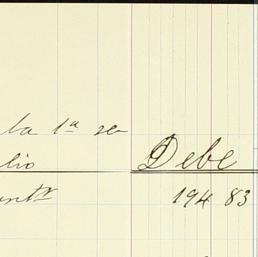 la 1ª se
lio Debe
194 83